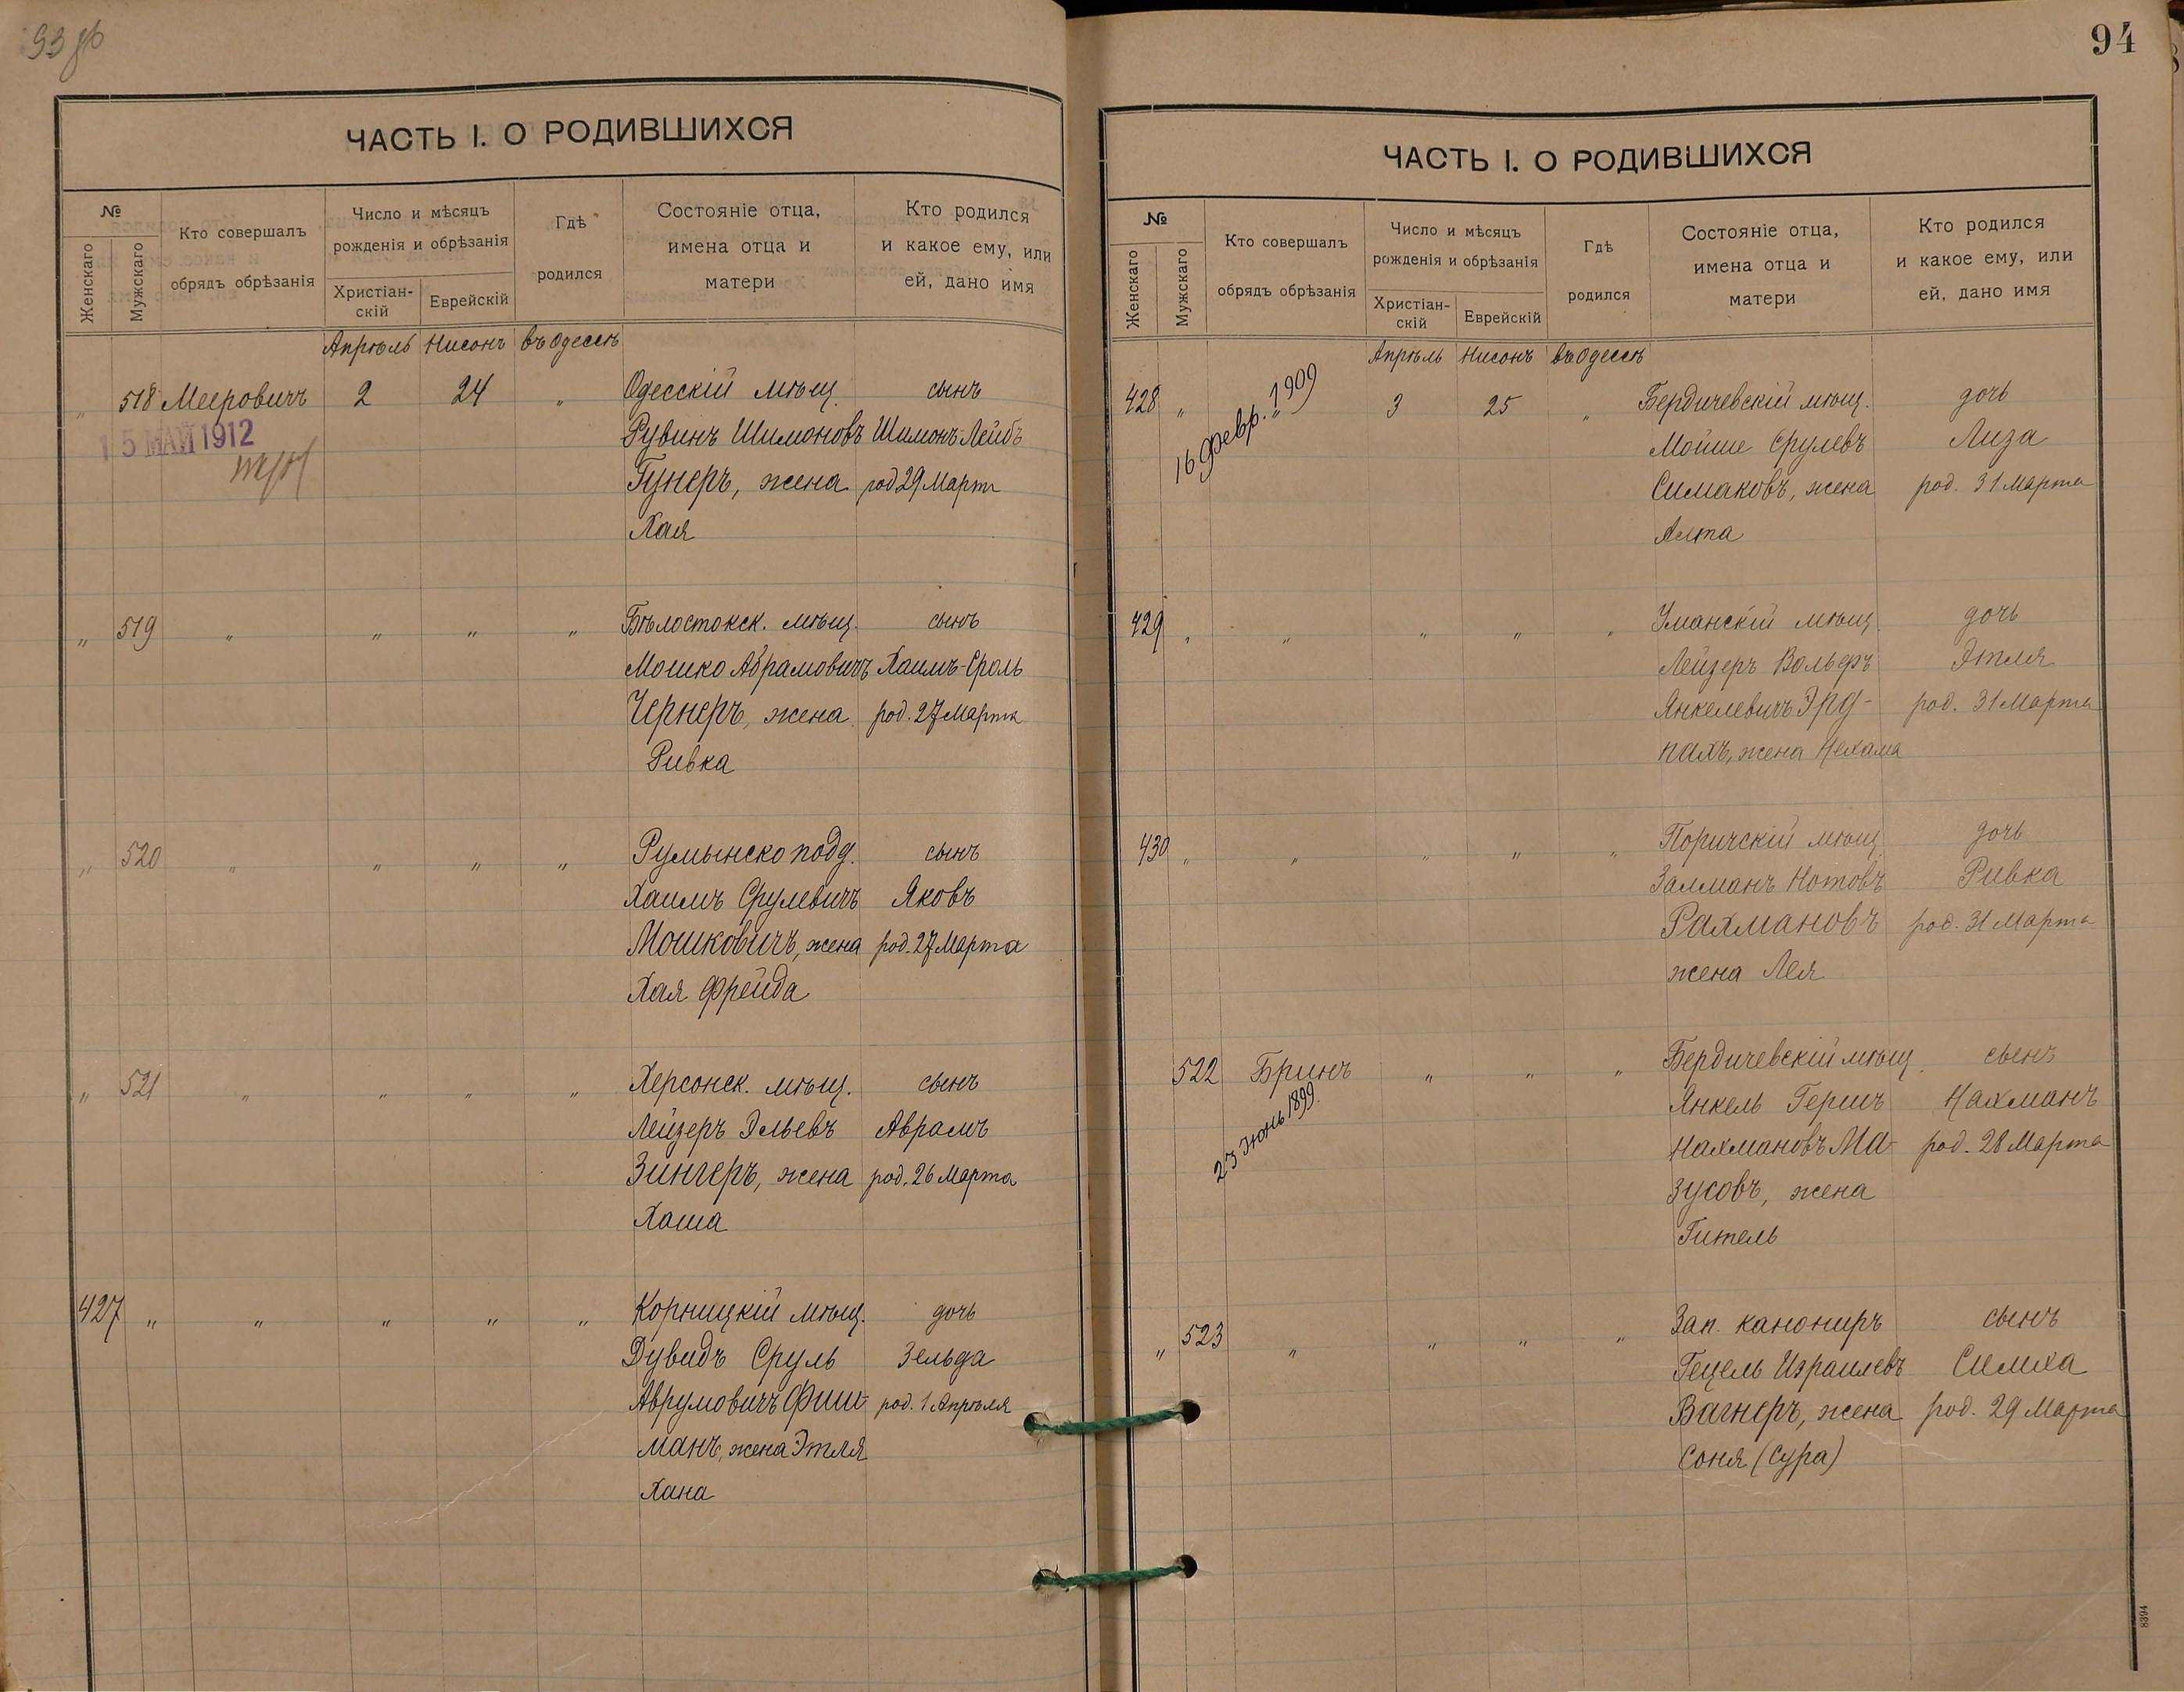 93 об
ЧАСТЬ I. О РОДИВШИХСЯ
№
Женскаго
Мужскаго
Кто совершалъ
обрядъ обрѣзанія
Число и мѣсяцъ
рожденія и обрѣзанія
Христіан-
скій
Еврейскій
Гдѣ
родился
Состояніе отца,
имена отца и
матери
Кто родился
и какое ему, или
ей, дано имя
Апрѣль Нисонъ въ Одессѣ
„ 518 Мееровичъ 2 24 „ Одесскій мѣщ. сынъ
15 МАЙ 1912
Рувинъ Шимоновъ Шимонъ-Лейбъ
Гунеръ, жена род 29 Марта
Хая
„ 519 „ „ „ „ Бѣлостокск. мѣщ. сынъ
Мошко Абрамовичъ Хаимъ-Сроль
Чернеръ, жена род. 27 Марта
Ривка
„ 520 „ „ „ „ Румынско подд. сынъ
Хаимъ Срулевичъ Яковъ
Мошковичъ, жена род. 27 Марта
Хая Фрейда
„ 521 „ „ „ „ Херсонск. мѣщ. сынъ
Лейзеръ Эльевъ Аврамъ
Зингеръ, жена род. 26 Марта
Хаша
427 „ „ „ „ „ Корницкій мѣщ. дочь
Дувидъ Сруль Зельда
Аврумовичъ Фиш- род. 1 Апрѣля
манъ, жена Этля
Хана
94
ЧАСТЬ I. О РОДИВШИХСЯ
№
Женскаго
Мужскаго
Кто совершалъ
обрядъ обрѣзанія
Число и мѣсяцъ
рожденія и обрѣзанія
Христіан-
скій
Еврейскій
Гдѣ
родился
Состояніе отца,
имена отца и
матери
Кто родился
и какое ему, или
ей, дано имя
Апрѣль Нисонъ въ Одессѣ
428 „ „ 3 25 „ Бердичевскій мѣщ. дочь
16 Февр. 1909
Мойше Срулевъ Лиза
Симаковъ, жена род. 31 Марта
Алта
429 „ „ „ „ „ Уманскій мѣщ. дочь
Лейзеръ Вольфъ Этля
Янкелевичъ Эрд- род. 31 Марта
пахъ, жена Нехама
430 „ „ „ „ „ Поричскій мѣщ. дочь
Залманъ Нотовъ Ривка
Рахмановъ род. 31 Марта
жена Лея
522 Бринъ „ „ „ Бердичевскій мѣщ. сынъ
23 Июнь 1899.
Янкель Гершъ Нахманъ
Нахмановъ Ма- род. 28 Марта
зусовъ, жена
Гитель
„ 523 „ „ „ „ Зап. канониръ сынъ
Гецель Израилевъ Симха
Вагнеръ, жена род. 29 Марта
Соня (Сура)
8394